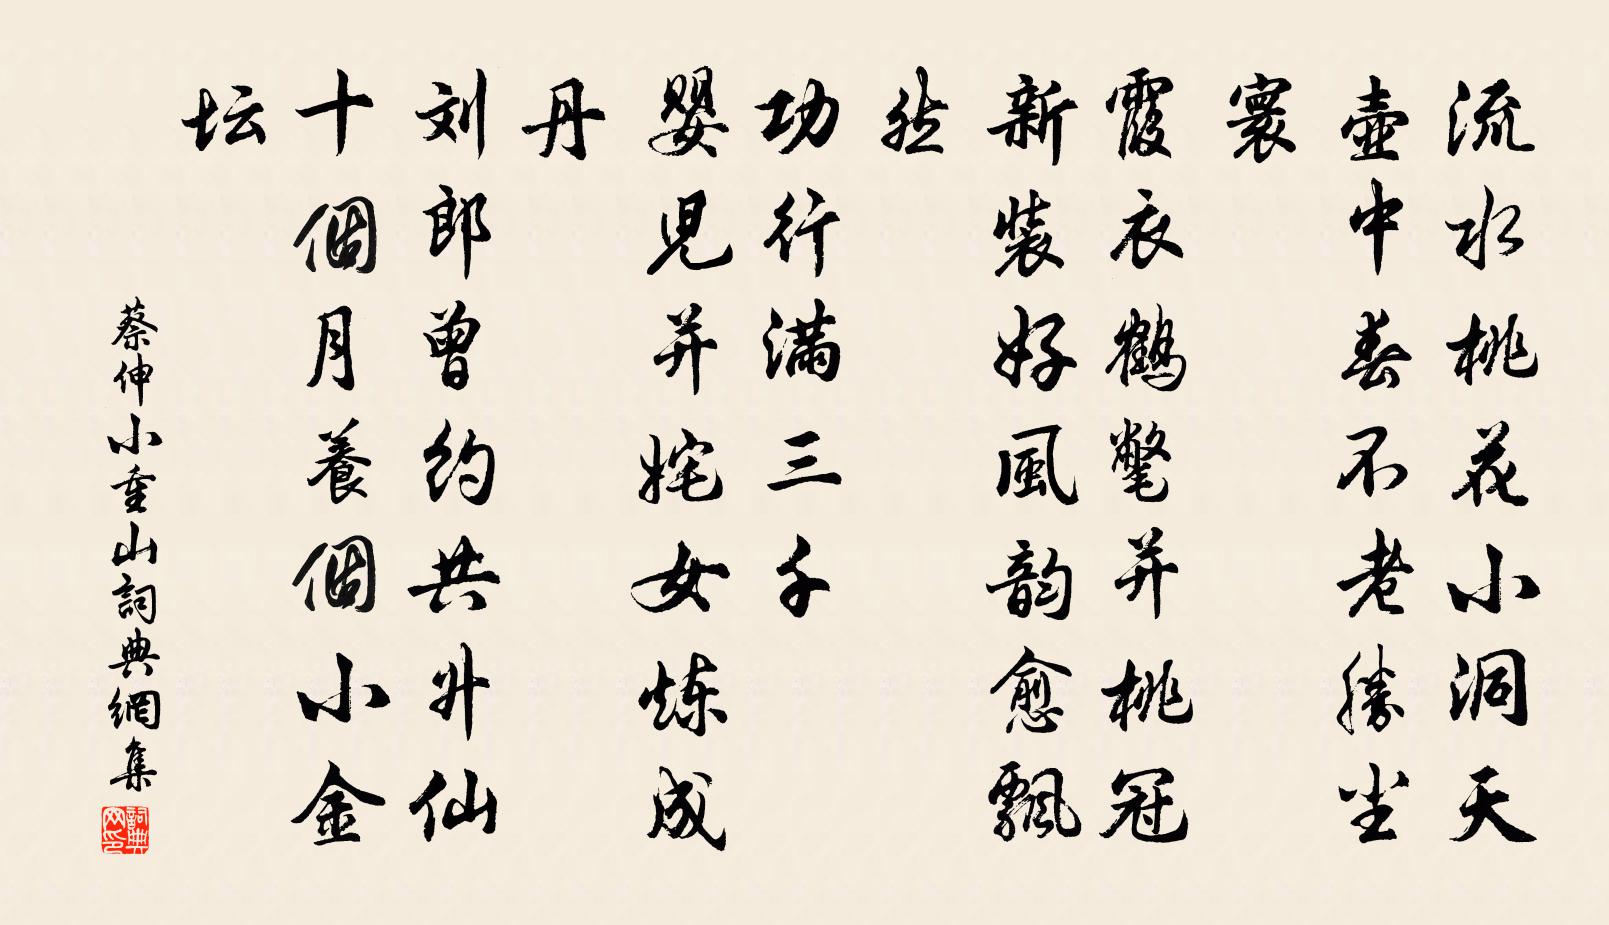 流水桃花小洞天
壶中春不老勝尘
寰
霞衣鶴氅并桃冠
新裝好風韵愈飄
然
功行滿三千
嬰児并姹女炼成
丹
刘郎曾约共升仙
十個月養個小金
坛
蔡伸小重山詞典網集
詞典网印